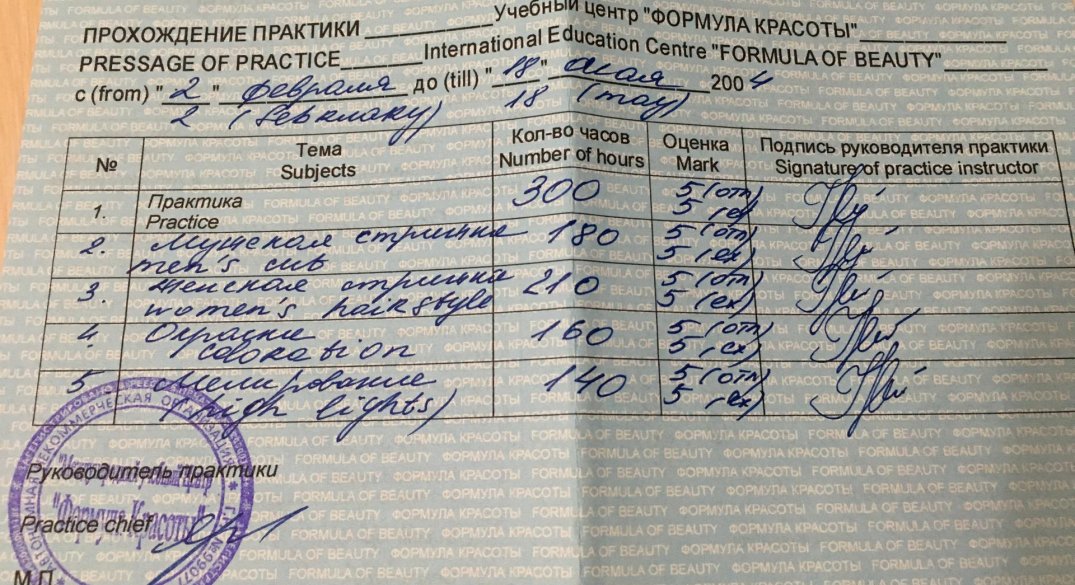 ПРОХОЖДЕНИЕ ПРАКТИКИ Учебный центр "ФОРМУЛА КРАСОТЫ"
PRESSAGE OF PRACTICE International Education Centre "FORMULA OF BEAUTY"
с (from) "2" февраля до (till) "18" мая 2004
2 (Februaru) 18 (may)
№ Тема Кол-во часов Оценка Подпись руководителя практики
Subjects Number of hours Mark Signature of practice instructor
1. Практика 300 5 (отл)
Practice 5 (ex)
2. Мужская стрижка 180 5 (отл)
men's cut 5 (ex)
3. Женская стрижка 210 5 (отл)
women's hairstyle 5 (ex)
4. Окраска 160 5 (отл)
coloration 5 (ex)
5. Мелирование 140 5 (отл)
(high lights) 5 (ex)
Руководитель практики
Practice chief
"Формула Красоты"
М.П.